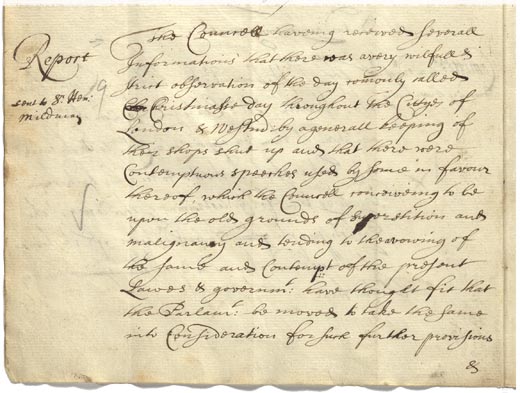 The Councell haveing received severall
Report
Informations that there was a very wilfull &
strict observation of the day comonly called
sent to Sr Hen:
Mildmay
Christmasse day throughout the Cittyes of
London & Westmr: by a generall keeping of
their shops shut up and that there were
Contemptuous speeches used by some in favour
thereof, which the Councell conceiveing to be
upon the old grounds of superstition and
malignancy and tending to the avowing of
the same and Contempt of the present
Lawes & governmt: have thought fit that
the Parlamt: be moved to take the same
into Consideration for such further provisions
&